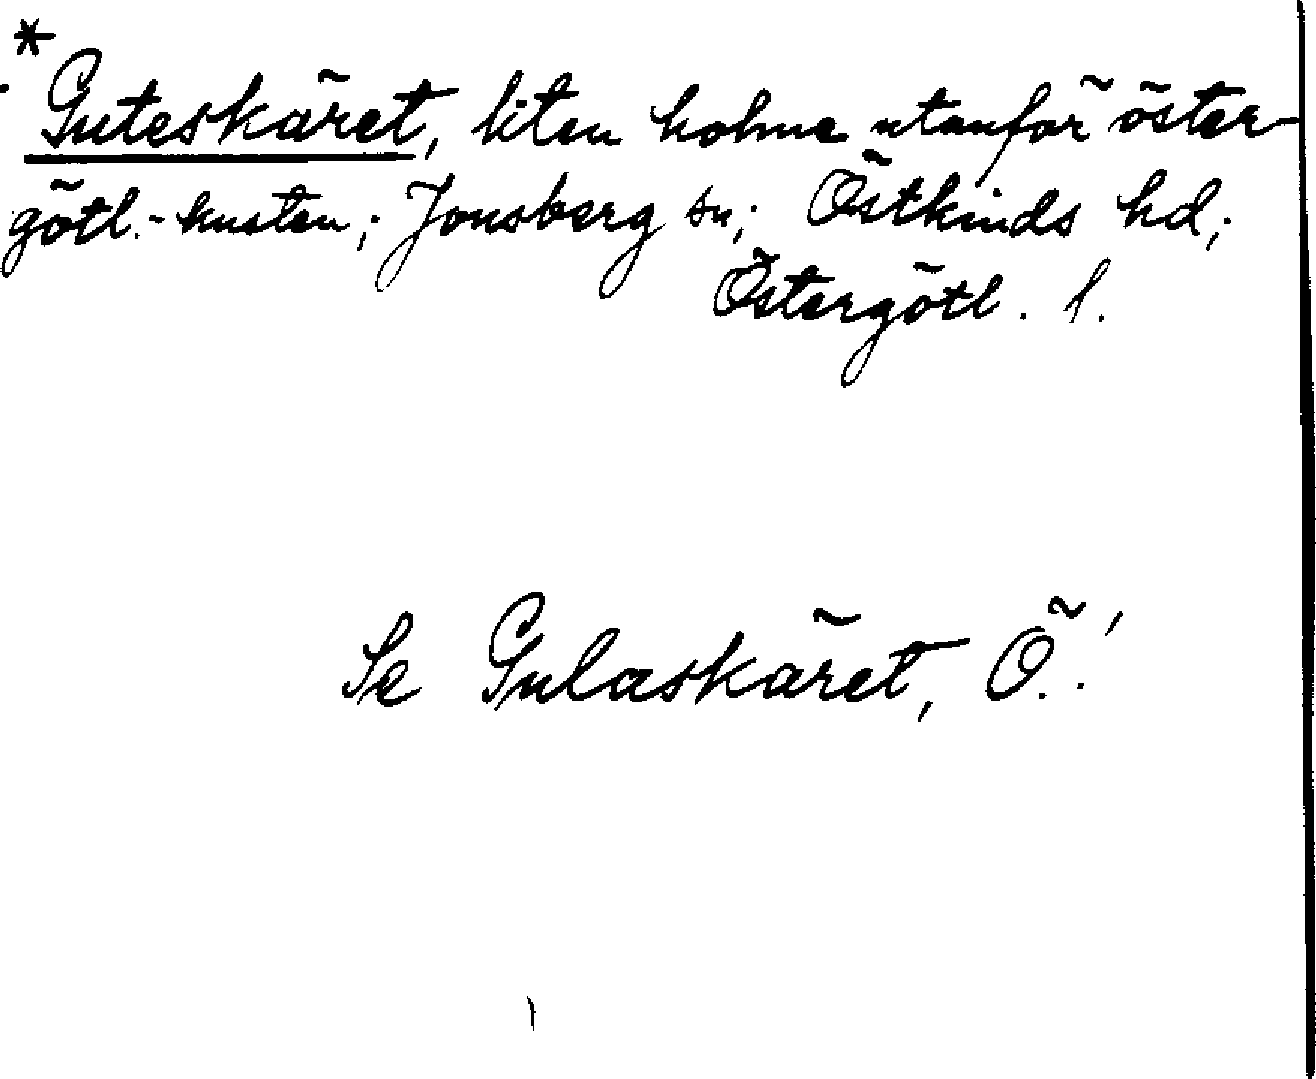 *
Guteskäret, liten holme utanför öster-
götl.-kusten; Jonsberg sn; Östkinds hd;
Östergötl. l.
Se Gulaskäret, Ö.!